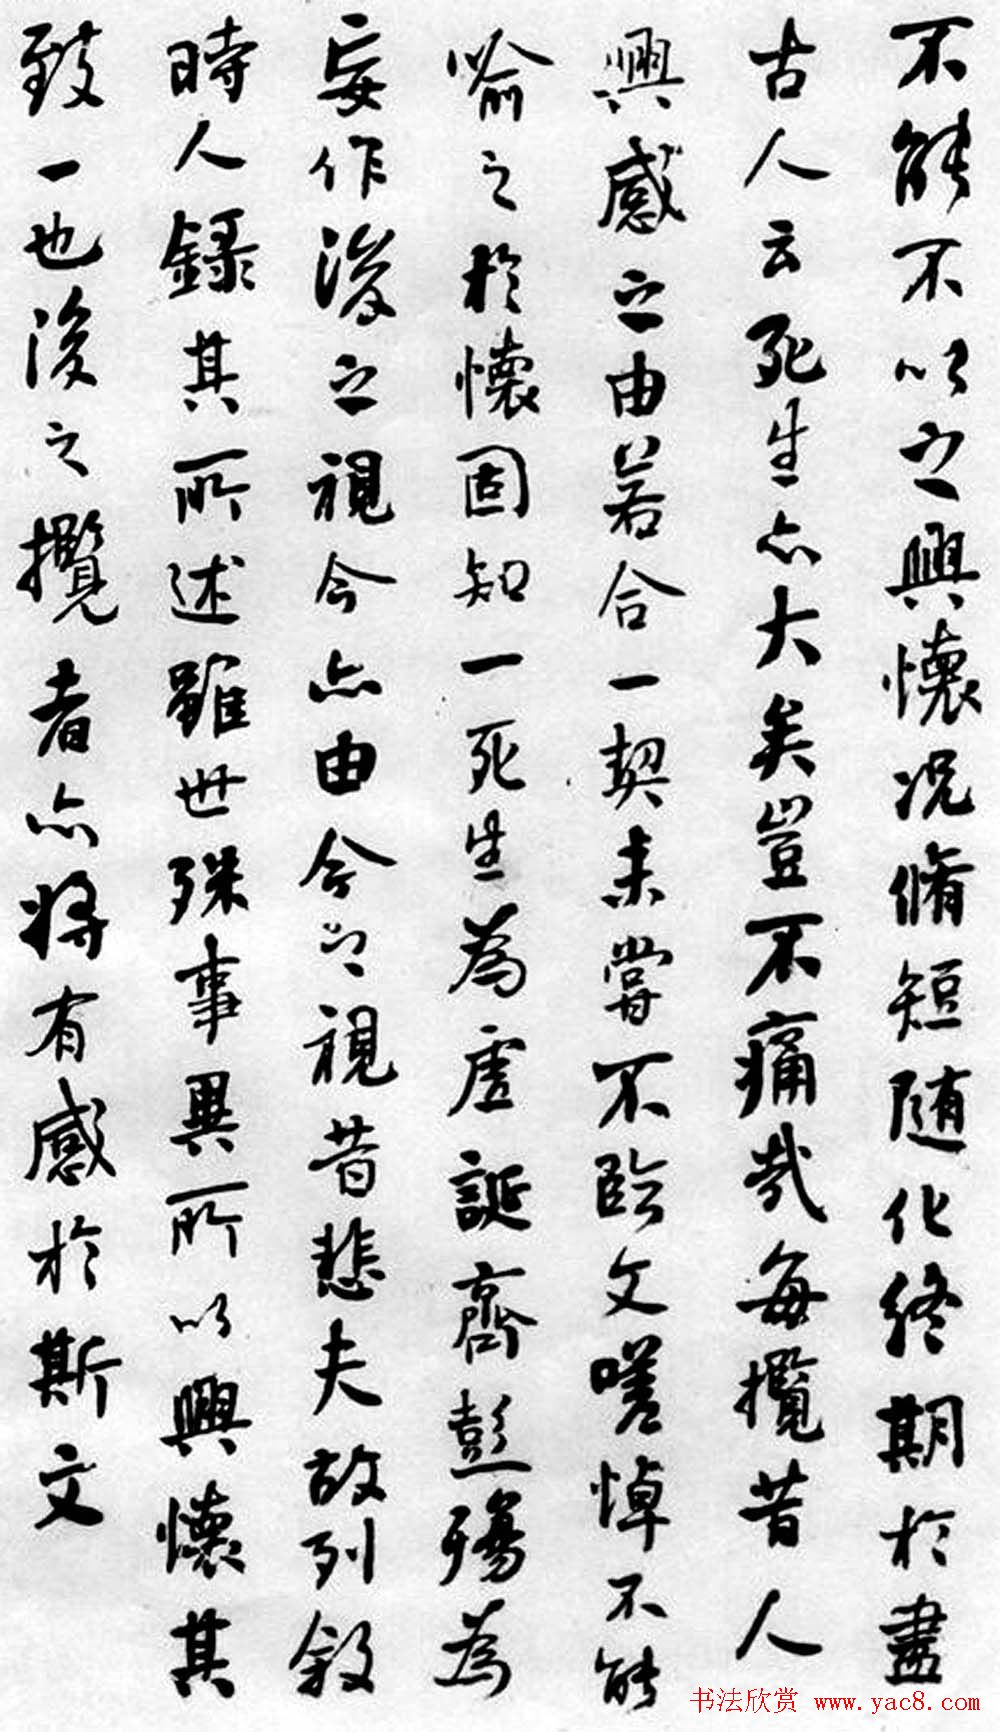 不能不以之興懷况脩短随化終期於盡
古人云死生亦大矣豈不痛哉每攬昔人
興感之由若合一契未嘗不臨文嗟悼不能
喻之於懷固知一死生為虛誕齊彭殤為
妄作後之視今亦由今之視昔悲夫故列敘
時人錄其所述雖世殊事異所以興懷其
致一也後之攬者亦將有感於斯文
书法欣赏 www.yac8.com